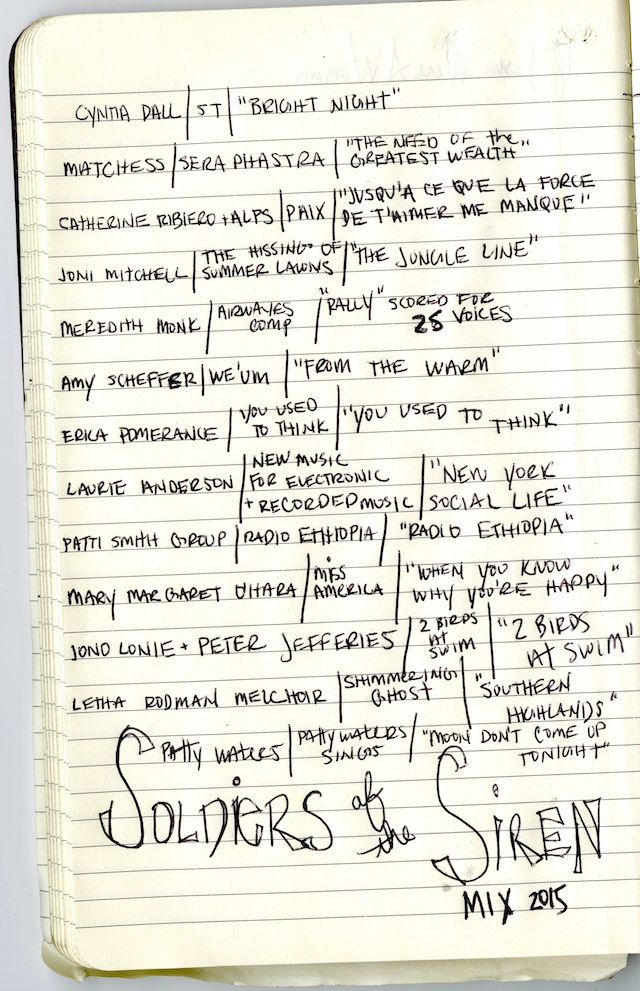 CYNTIA DALL / ST / "BRIGHT NIGHT"
MATCHESS / SERAPHASTRA / "THE NEED OF the GREATEST WEALTH"
CATHERINE RIBIERO + ALPS / PAIX / "JUSQU'A CE QUE LA FORCE DE T'AIMER ME MANQUE"
JONI MITCHELL / THE HISSING OF SUMMER LAWNS / "THE JUNGLE LINE"
MEREDITH MONK / AIRWAVES COMP / "RALLY" SCORED FOR 28 VOICES
AMY SCHEFFER / WE'UM / "FROM THE WARM"
ERICA POMERANCE / YOU USED TO THINK / "YOU USED TO THINK"
LAURIE ANDERSON / NEW MUSIC FOR ELECTRONIC + RECORDED MUSIC / "NEW YORK SOCIAL LIFE"
PATTI SMITH GROUP / RADIO ETHIOPIA / "RADIO ETHIOPIA"
MARY MARGARET O'HARA / MISS AMERICA / "WHEN YOU KNOW WHY YOU'RE HAPPY"
JONO LONIE + PETER JEFFERIES / 2 BIRDS At SWIM / "2 BIRDS At SWIM"
LETHA RODMAN MELCHOIR / SHIMMERING GHOST / "SOUTHERN HIGHLANDS"
PATTY WATERS / PATTY WATERS SINGS / "MOON DON'T COME UP TONIGHT"
SOLDiERS of the SiREN
MIX 2015